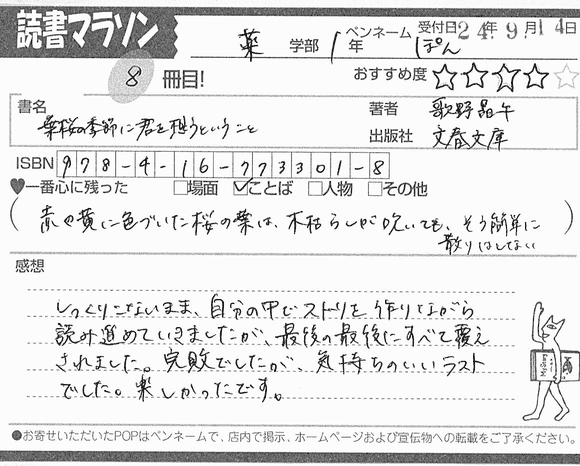 読書マラソン
薬 学部 1年 ペンネーム ぽん 受付日24年9月14日
8 冊目!
おすすめ度 ★★★★☆
書名 葉桜の季節に君を想うということ
著者 歌野晶午
出版社 文春文庫
ISBN 978-4-16-773301-8
♥一番心に残った □場面 ☑ことば □人物 □その他
(赤や黄に色づいた桜の葉は、木枯らしが吹いても、そう簡単に
散りはしない)
感想
しっくりこないまま、自分の中でストーリーを作りながら
読み進めていきましたが、最後の最後にすべて覆え
されました。完敗でしたが、気持ちのいいラスト
でした。楽しかったです。
●お寄せいただいたPOPはペンネームで、店内で掲示、ホームページおよび宣伝物への転載をご了承ください。